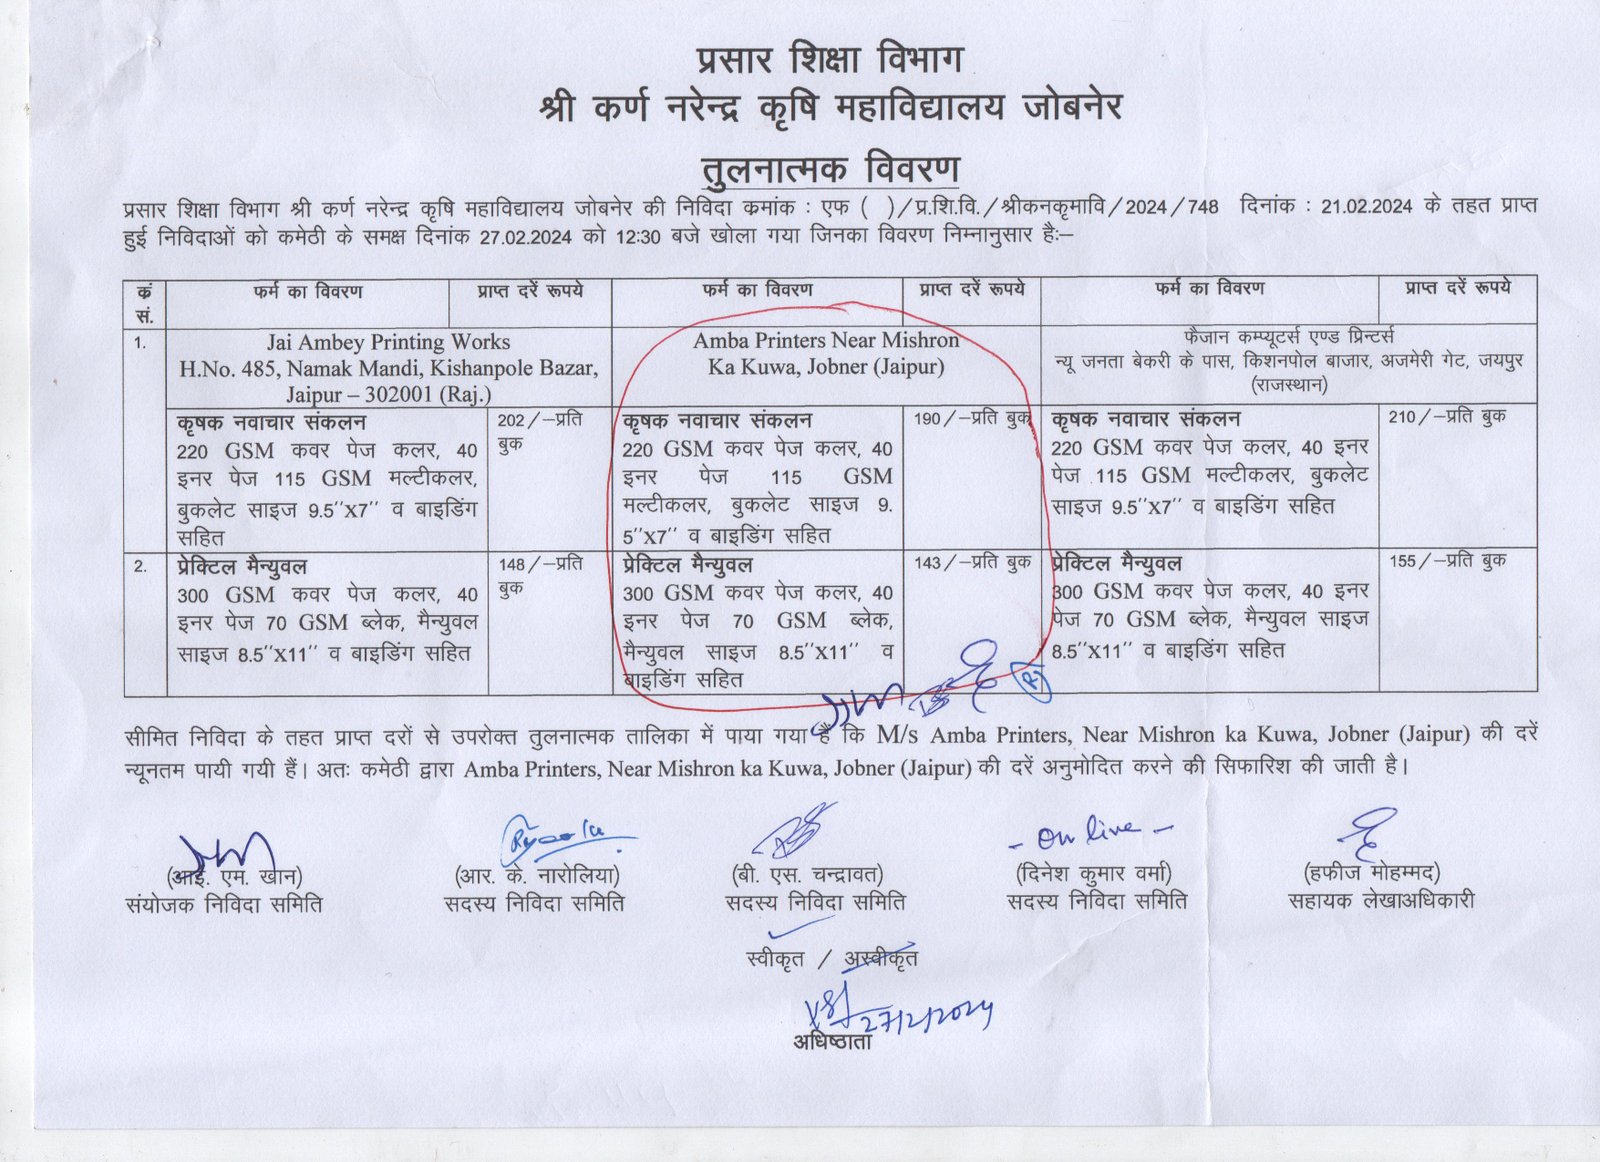 प्रसार शिक्षा विभाग
श्री कर्ण नरेन्द्र कृषि महाविद्यालय जोबनेर
तुलनात्मक विवरण
प्रसार शिक्षा विभाग श्री कर्ण नरेन्द्र कृषि महाविद्यालय जोबनेर की निविदा क्रमांक : एफ ( )/प्र.शि.वि./श्रीकनकृमावि/2024/748 दिनांक : 21.02.2024 के तहत प्राप्त
हुई निविदाओं को कमेठी के समक्ष दिनांक 27.02.2024 को 12:30 बजे खोला गया जिनका विवरण निम्नानुसार हैः–
क्रं सं. फर्म का विवरण प्राप्त दरें रूपये फर्म का विवरण प्राप्त दरें रूपये फर्म का विवरण प्राप्त दरें रूपये
1.
Jai Ambey Printing Works
H.No. 485, Namak Mandi, Kishanpole Bazar,
Jaipur – 302001 (Raj.)
Amba Printers Near Mishron
Ka Kuwa, Jobner (Jaipur)
फैजान कम्प्यूटर्स एण्ड प्रिन्टर्स
न्यू जनता बेकरी के पास, किशनपोल बाजार, अजमेरी गेट, जयपुर
(राजस्थान)
कृषक नवाचार संकलन
220 GSM कवर पेज कलर, 40
इनर पेज 115 GSM मल्टीकलर,
बुकलेट साइज 9.5''X7'' व बाइडिंग
सहित
202/–प्रति
बुक
कृषक नवाचार संकलन
220 GSM कवर पेज कलर, 40
इनर पेज 115 GSM
मल्टीकलर, बुकलेट साइज 9.
5''X7'' व बाइडिंग सहित
190/–प्रति बुक
कृषक नवाचार संकलन
220 GSM कवर पेज कलर, 40 इनर
पेज 115 GSM मल्टीकलर, बुकलेट
साइज 9.5''X7'' व बाइडिंग सहित
210/–प्रति बुक
2.
प्रेक्टिल मैन्युवल
300 GSM कवर पेज कलर, 40
इनर पेज 70 GSM ब्लेक, मैन्युवल
साइज 8.5''X11'' व बाइडिंग सहित
148/–प्रति
बुक
प्रेक्टिल मैन्युवल
300 GSM कवर पेज कलर, 40
इनर पेज 70 GSM ब्लेक,
मैन्युवल साइज 8.5''X11'' व
बाइडिंग सहित
143/–प्रति बुक
प्रेक्टिल मैन्युवल
300 GSM कवर पेज कलर, 40 इनर
पेज 70 GSM ब्लेक, मैन्युवल साइज
8.5''X11'' व बाइडिंग सहित
155/–प्रति बुक
सीमित निविदा के तहत प्राप्त दरों से उपरोक्त तुलनात्मक तालिका में पाया गया है कि M/s Amba Printers, Near Mishron ka Kuwa, Jobner (Jaipur) की दरें
न्यूनतम पायी गयी हैं। अतः कमेठी द्वारा Amba Printers, Near Mishron ka Kuwa, Jobner (Jaipur) की दरें अनुमोदित करने की सिफारिश की जाती है।
- on line -
(आई. एम. खान) (आर. के. नारोलिया) (बी. एस. चन्द्रावत) (दिनेश कुमार वर्मा) (हफीज मोहम्मद)
संयोजक निविदा समिति सदस्य निविदा समिति सदस्य निविदा समिति सदस्य निविदा समिति सहायक लेखाअधिकारी
स्वीकृत / अस्वीकृत
27/2/2024
अधिष्ठाता